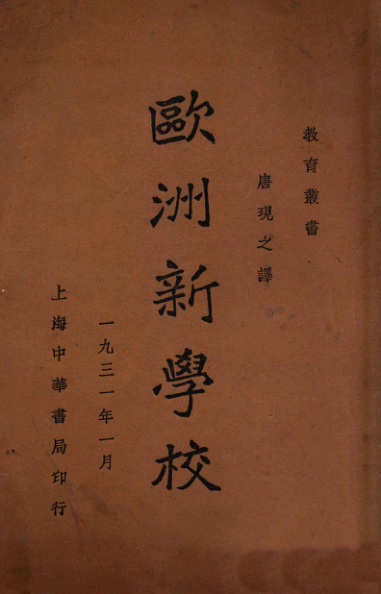 教育叢書
唐現之譯
歐洲新學校
一九三一年一月
上海中華書局印行